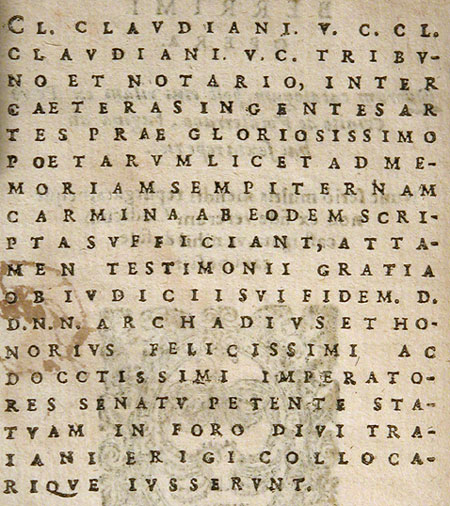 CL. CLAVDIANI. V. C. CL.
CLAVDIANI. V. C. TRIBV-
NO ET NOTARIO, INTER
CAETERAS INGENTES AR
TES PRAE GLORIOSISSIMO
POETARVM LICET AD ME-
MORIAM SEMPITERNAM
CARMINA AB EODEM SCRI-
PTA SVFFICIANT, ATTA-
MEN TESTIMONII GRATIA
OB IVDICII SVI FIDEM. D.
D. N. N. ARCHADIVS ET HO-
NORIVS FELICISSIMI AC
DOCCTISSIMI IMPERATO-
RES SENATV PETENTE STA-
TVAM IN FORO DIVI TRA-
IANI ERIGI COLLOCA-
RIQVE IVSSERVNT.